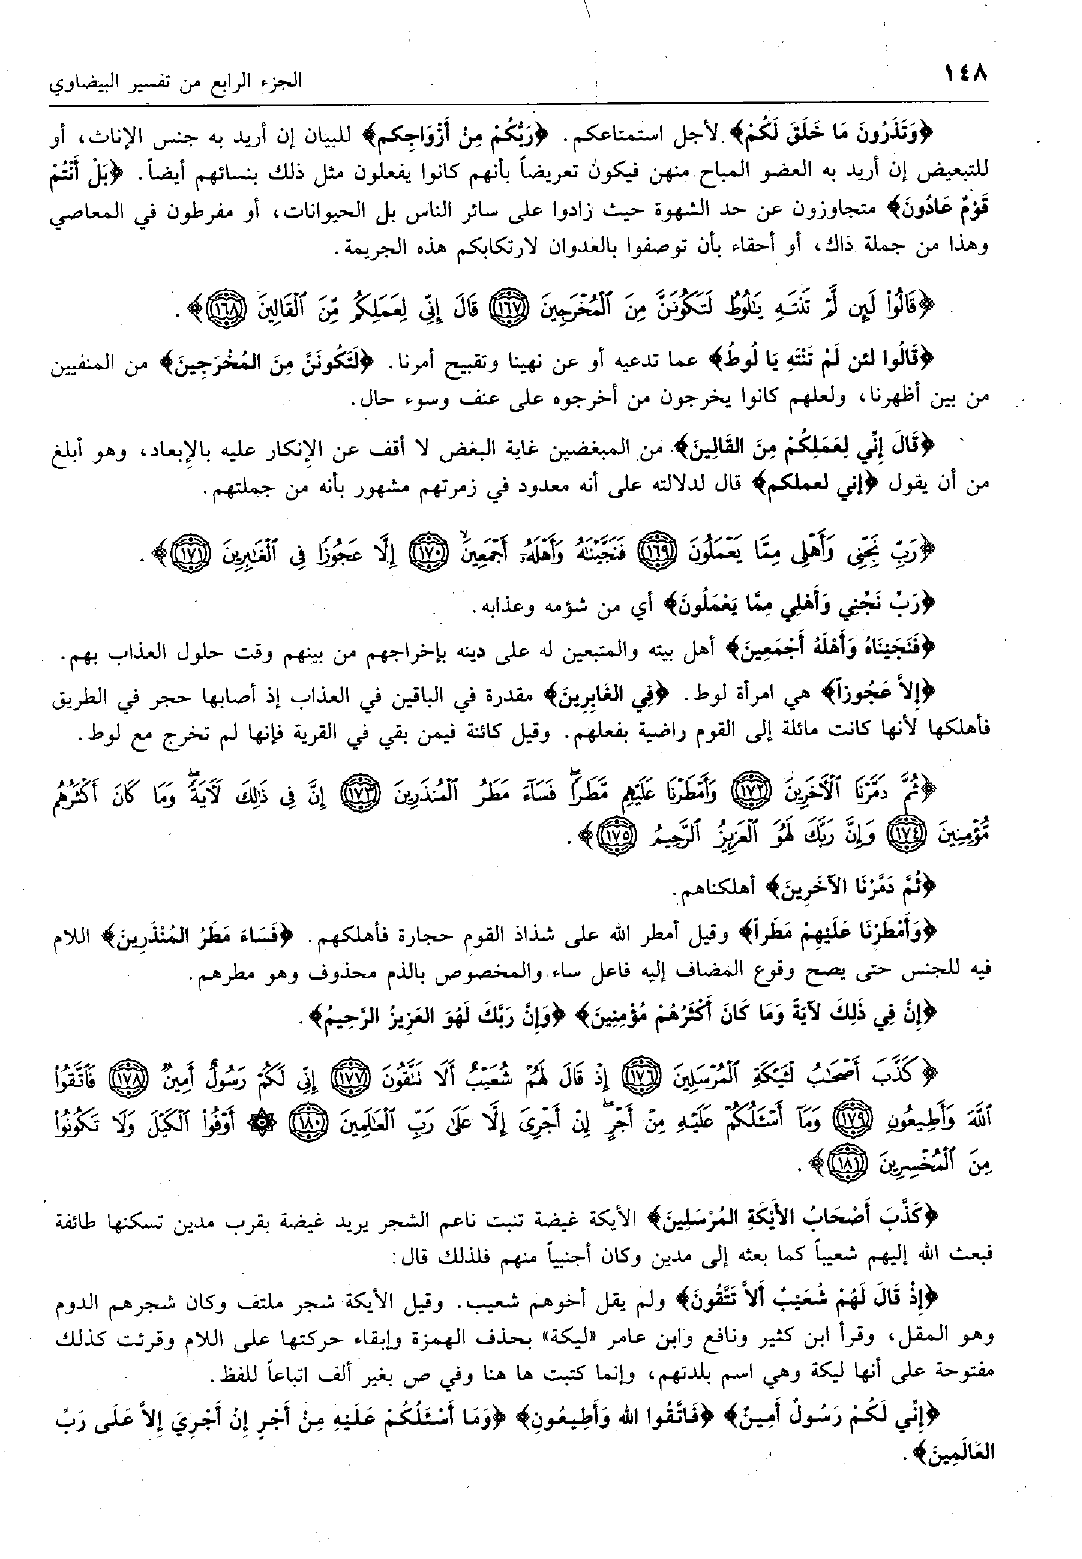 ١٤٨
الجزء الرابع من تفسير البيضاوي
﴿وَتَذَرُونَ مَا خَلَقَ لَكُمْ﴾ لأجل استمتاعكم. ﴿رَبُّكُمْ مِنْ أَزْوَاجِكم﴾ للبيان إن أريد به جنس الإناث، أو
للتبعيض إن أريد به العضو المباح منهن فيكون تعريضاً بأنهم كانوا يفعلون مثل ذلك بنسائهم أيضاً. ﴿بَلْ أَنْتُمْ
قَوْمٌ عَادُونَ﴾ متجاوزون عن حد الشهوة حيث زادوا على سائر الناس بل الحيوانات، أو مفرطون في المعاصي
وهذا من جملة ذاك، أو أحقاء بأن توصفوا بالعدوان لارتكابكم هذه الجريمة.
﴿قَالُوا۟ لَئِن لَّمْ تَنتَهِ يَٰلُوطُ لَتَكُونَنَّ مِنَ ٱلْمُخْرَجِينَ ﴿١٦٧﴾ قَالَ إِنِّى لِعَمَلِكُم مِّنَ ٱلْقَالِينَ ﴿١٦٨﴾﴾.
﴿قَالُوا لَئن لَمْ تَنْتَهِ يَا لُوطُ﴾ عما تدعيه أو عن نهينا وتقبيح أمرنا. ﴿لَتَكُونَنَّ مِنَ المُخْرَجِينَ﴾ من المنفيين
من بين أظهرنا، ولعلهم كانوا يخرجون من أخرجوه على عنف وسوء حال.
﴿قَالَ إِنِّي لِعَمَلِكُمْ مِنَ القَالِينَ﴾ من المبغضين غاية البغض لا أقف عن الإنكار عليه بالإبعاد، وهو أبلغ
من أن يقول ﴿إني لعملكم﴾ قال لدلالته على أنه معدود في زمرتهم مشهور بأنه من جملتهم.
﴿رَبِّ نَجِّنِى وَأَهْلِى مِمَّا يَعْمَلُونَ ﴿١٦٩﴾ فَنَجَّيْنَٰهُ وَأَهْلَهُۥٓ أَجْمَعِينَ ﴿١٧٠﴾ إِلَّا عَجُوزًا فِى ٱلْغَٰبِرِينَ ﴿١٧١﴾﴾.
﴿رَبِّ نَجِّنِي وَأَهْلِي مِمَّا يَعْمَلُونَ﴾ أي من شؤمه وعذابه.
﴿فَنَجَّيْنَاهُ وَأَهْلَهُ أَجْمَعِينَ﴾ أهل بيته والمتبعين له على دينه بإخراجهم من بينهم وقت حلول العذاب بهم.
﴿إِلاَّ عَجُوزاً﴾ هي امرأة لوط. ﴿فِي الغَابِرِينَ﴾ مقدرة في الباقين في العذاب إذ أصابها حجر في الطريق
فأهلكها لأنها كانت مائلة إلى القوم راضية بفعلهم. وقيل كائنة فيمن بقي في القرية فإنها لم تخرج مع لوط.
﴿ثُمَّ دَمَّرْنَا ٱلْآخَرِينَ ﴿١٧٢﴾ وَأَمْطَرْنَا عَلَيْهِم مَّطَرًا ۖ فَسَآءَ مَطَرُ ٱلْمُنذَرِينَ ﴿١٧٣﴾ إِنَّ فِى ذَٰلِكَ لَآيَةً ۖ وَمَا كَانَ أَكْثَرُهُم
مُّؤْمِنِينَ ﴿١٧٤﴾ وَإِنَّ رَبَّكَ لَهُوَ ٱلْعَزِيزُ ٱلرَّحِيمُ ﴿١٧٥﴾﴾.
﴿ثُمَّ دَمَّرْنَا الآخَرِينَ﴾ أهلكناهم.
﴿وَأَمْطَرْنَا عَلَيْهِمْ مَطَراً﴾ وقيل أمطر الله على شذاذ القوم حجارة فأهلكهم. ﴿فَسَاءَ مَطَرُ المُنْذَرِينَ﴾ اللام
فيه للجنس حتى يصح وقوع المضاف إليه فاعل ساء والمخصوص بالذم محذوف وهو مطرهم.
﴿إِنَّ فِي ذَلِكَ لآيَةً وَمَا كَانَ أَكْثَرُهُمْ مُؤْمِنِينَ﴾ ﴿وَإِنَّ رَبَّكَ لَهُوَ العَزِيزُ الرَّحِيمُ﴾.
﴿كَذَّبَ أَصْحَٰبُ لْـَٔيْكَةِ ٱلْمُرْسَلِينَ ﴿١٧٦﴾ إِذْ قَالَ لَهُمْ شُعَيْبٌ أَلَا تَتَّقُونَ ﴿١٧٧﴾ إِنِّى لَكُمْ رَسُولٌ أَمِينٌ ﴿١٧٨﴾ فَٱتَّقُوا۟
ٱللَّهَ وَأَطِيعُونِ ﴿١٧٩﴾ وَمَآ أَسْـَٔلُكُمْ عَلَيْهِ مِنْ أَجْرٍ ۖ إِنْ أَجْرِىَ إِلَّا عَلَىٰ رَبِّ ٱلْعَٰلَمِينَ ﴿١٨٠﴾ ۞ أَوْفُوا۟ ٱلْكَيْلَ وَلَا تَكُونُوا۟
مِنَ ٱلْمُخْسِرِينَ ﴿١٨١﴾﴾.
﴿كَذَّبَ أَصْحَابُ الأَيْكَةِ المُرْسَلِينَ﴾ الأيكة غيضة تنبت ناعم الشجر يريد غيضة بقرب مدين تسكنها طائفة
فبعث الله إليهم شعيباً كما بعثه إلى مدين وكان أجنبياً منهم فلذلك قال:
﴿إِذْ قَالَ لَهُمْ شُعَيْبٌ أَلاَّ تَتَّقُونَ﴾ ولم يقل أخوهم شعيب. وقيل الأيكة شجر ملتف وكان شجرهم الدوم
وهو المقل، وقرأ ابن كثير ونافع وابن عامر «ليكة» بحذف الهمزة وإبقاء حركتها على اللام وقرئت كذلك
مفتوحة على أنها ليكة وهي اسم بلدتهم، وإنما كتبت ها هنا وفي ص بغير ألف اتباعاً للفظ.
﴿إِنِّي لَكُمْ رَسُولٌ أَمِينٌ﴾ ﴿فَاتَّقُوا الله وَأَطِيعُونِ﴾ ﴿وَمَا أَسْئَلُكُمْ عَلَيْهِ مِنْ أَجْرٍ إِنْ أَجْرِيَ إِلاَّ عَلَى رَبِّ
العَالَمِينَ﴾.